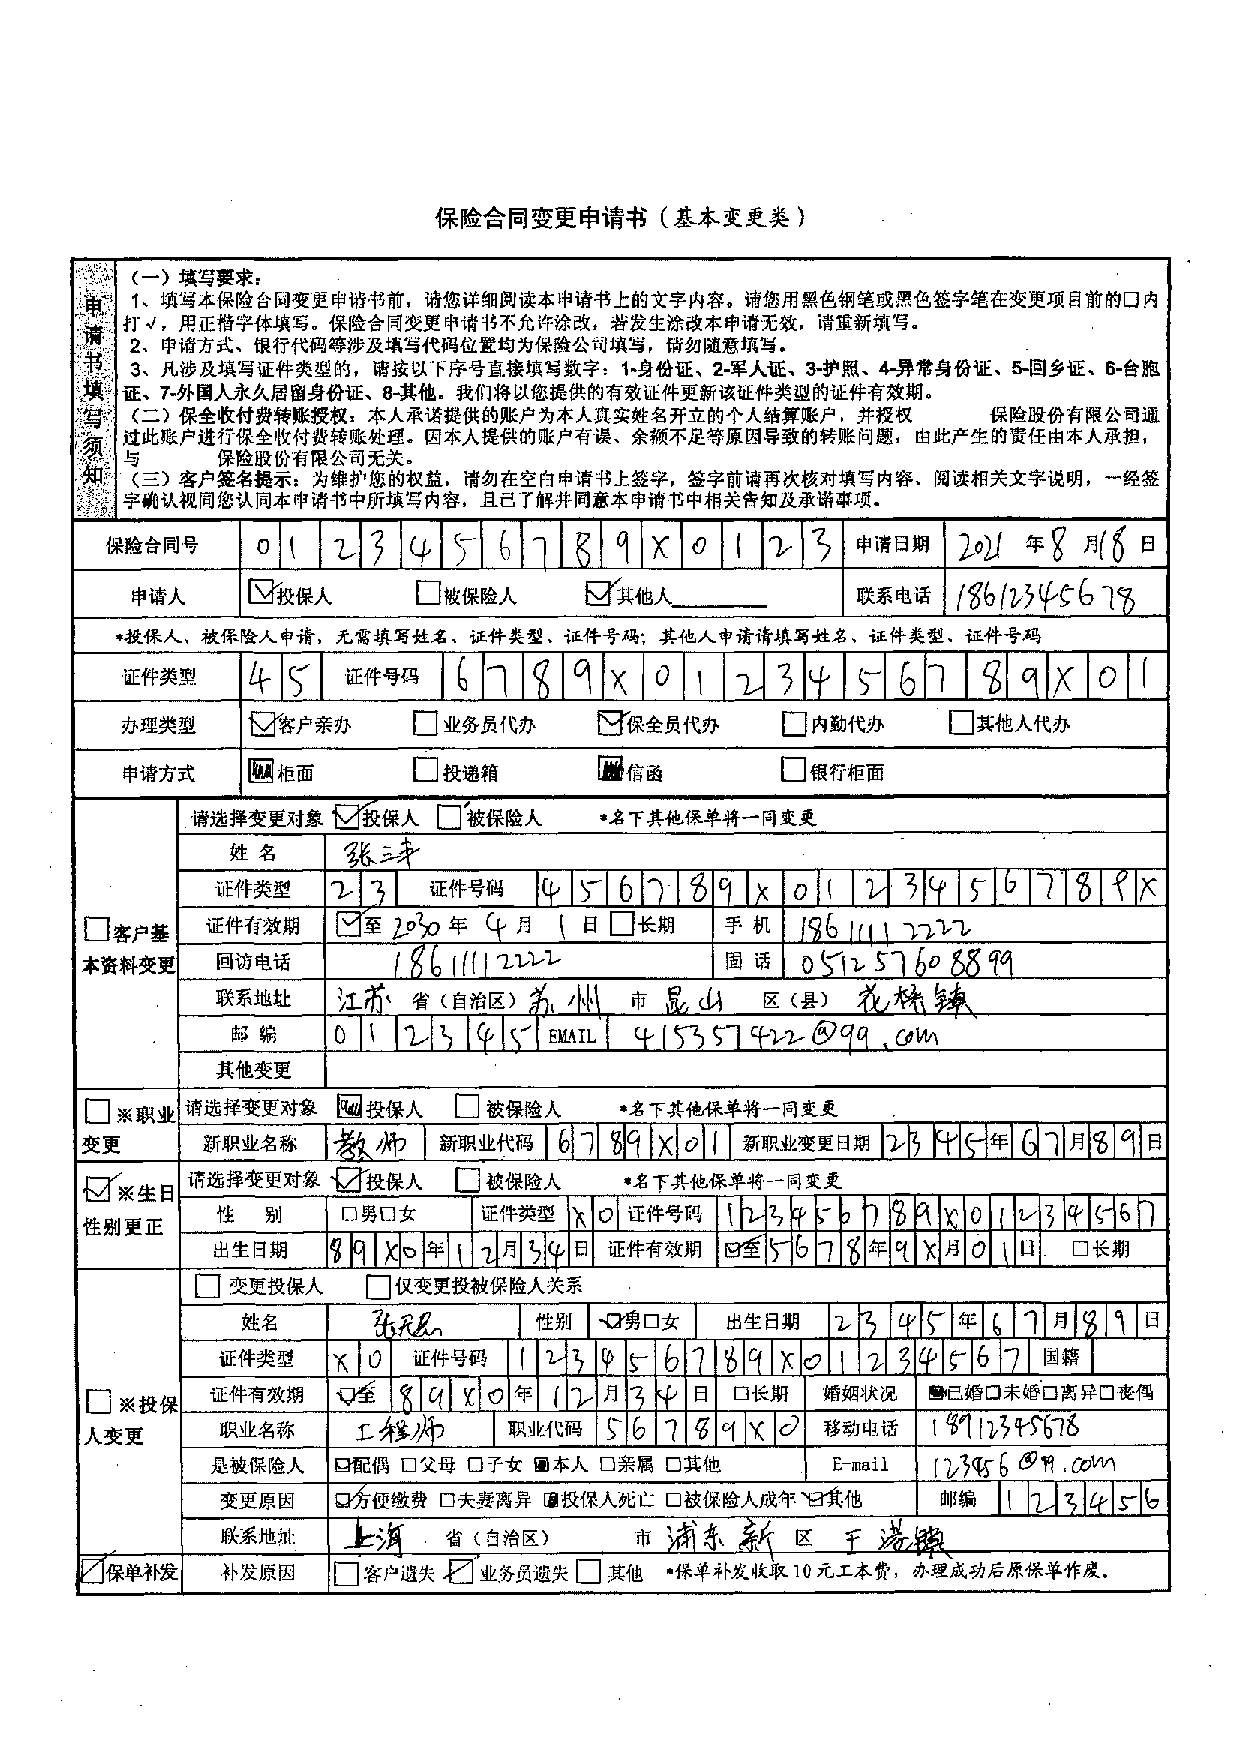 保险合同变更申请书（基本变更类）
申请书填写须知
（一）填写要求：
1、填写本保险合同变更申请书前，请您详细阅读本申请书上的文字内容。请您用黑色钢笔或黑色签字笔在变更项目前的□内
打√，用正楷字体填写。保险合同变更申请书不允许涂改，若发生涂改本申请无效，请重新填写。
2、申请方式、银行代码等涉及填写代码位置均为保险公司填写，请勿随意填写。
3、凡涉及填写证件类型的，请按以下序号直接填写数字：1-身份证、2-军人证、3-护照、4-异常身份证、5-回乡证、6-台胞
证、7-外国人永久居留身份证、8-其他。我们将以您提供的有效证件更新该证件类型的证件有效期。
（二）保全收付费转账授权：本人承诺提供的账户为本人真实姓名开立的个人结算账户，并授权 保险股份有限公司通
过此账户进行保全收付费转账处理。因本人提供的账户有误、余额不足等原因导致的转账问题，由此产生的责任由本人承担，
与 保险股份有限公司无关。
（三）客户签名提示：为维护您的权益，请勿在空白申请书上签字，签字前请再次核对填写内容、阅读相关文字说明，一经签
字确认视同您认同本申请书中所填写内容，且已了解并同意本申请书中相关告知及承诺事项。
保险合同号 0123456789X0123 申请日期 2021 年 8 月 18 日
申请人 ☑投保人 □被保险人 ☑其他人 联系电话 18612345678
*投保人、被保险人申请，无需填写姓名、证件类型、证件号码；其他人申请请填写姓名、证件类型、证件号码
证件类型 45 证件号码 6789X0123456789X01
办理类型 ☑客户亲办 □业务员代办 ☑保全员代办 □内勤代办 □其他人代办
申请方式 ■柜面 □投递箱 ■信函 □银行柜面
请选择变更对象 ☑投保人 □被保险人 *名下其他保单将一同变更
姓 名 张三丰
证件类型 23 证件号码 456789X0123456789X
□客户基本资料变更 证件有效期 ☑至 2030 年 4 月 1 日 □长期 手 机 18611112222
回访电话 18611112222 固 话 051257608899
联系地址 江苏 省（自治区） 苏州 市 昆山 区（县） 花桥镇
邮 编 012345 EMAIL 415357422@qq.com
其他变更
□※职业变更 请选择变更对象 ■投保人 □被保险人 *名下其他保单将一同变更
新职业名称 教师 新职业代码 6789X01 新职业变更日期 2345年67月89日
☑※生日性别更正 请选择变更对象 ☑投保人 □被保险人 *名下其他保单将一同变更
性 别 □男□女 证件类型 X0 证件号码 123456789X01234567
出生日期 89X0年12月34日 证件有效期 ☑至5678年9X月01日 □长期
□变更投保人 □仅变更投被保险人关系
姓名 性别 ☑男□女 出生日期 2345年67月89日
证件类型 X0 证件号码 123456789X01234567 国籍
□※投保人变更 证件有效期 ☑至89X0年12月34日 □长期 婚姻状况 ■已婚□未婚□离异□丧偶
职业名称 工程师 职业代码 56789X0 移动电话 18912345678
是被保险人 ☑配偶 □父母 □子女 ■本人 □亲属 □其他 E-mail 123456@qq.com
变更原因 ☑方便缴费 □夫妻离异 ■投保人死亡 □被保险人成年 ☑其他 邮编 123456
联系地址 上海 省（自治区） 市 浦东新 区 王港镇
☑保单补发 补发原因 □客户遗失 ☑业务员遗失 □其他 *保单补发收取10元工本费，办理成功后原保单作废。